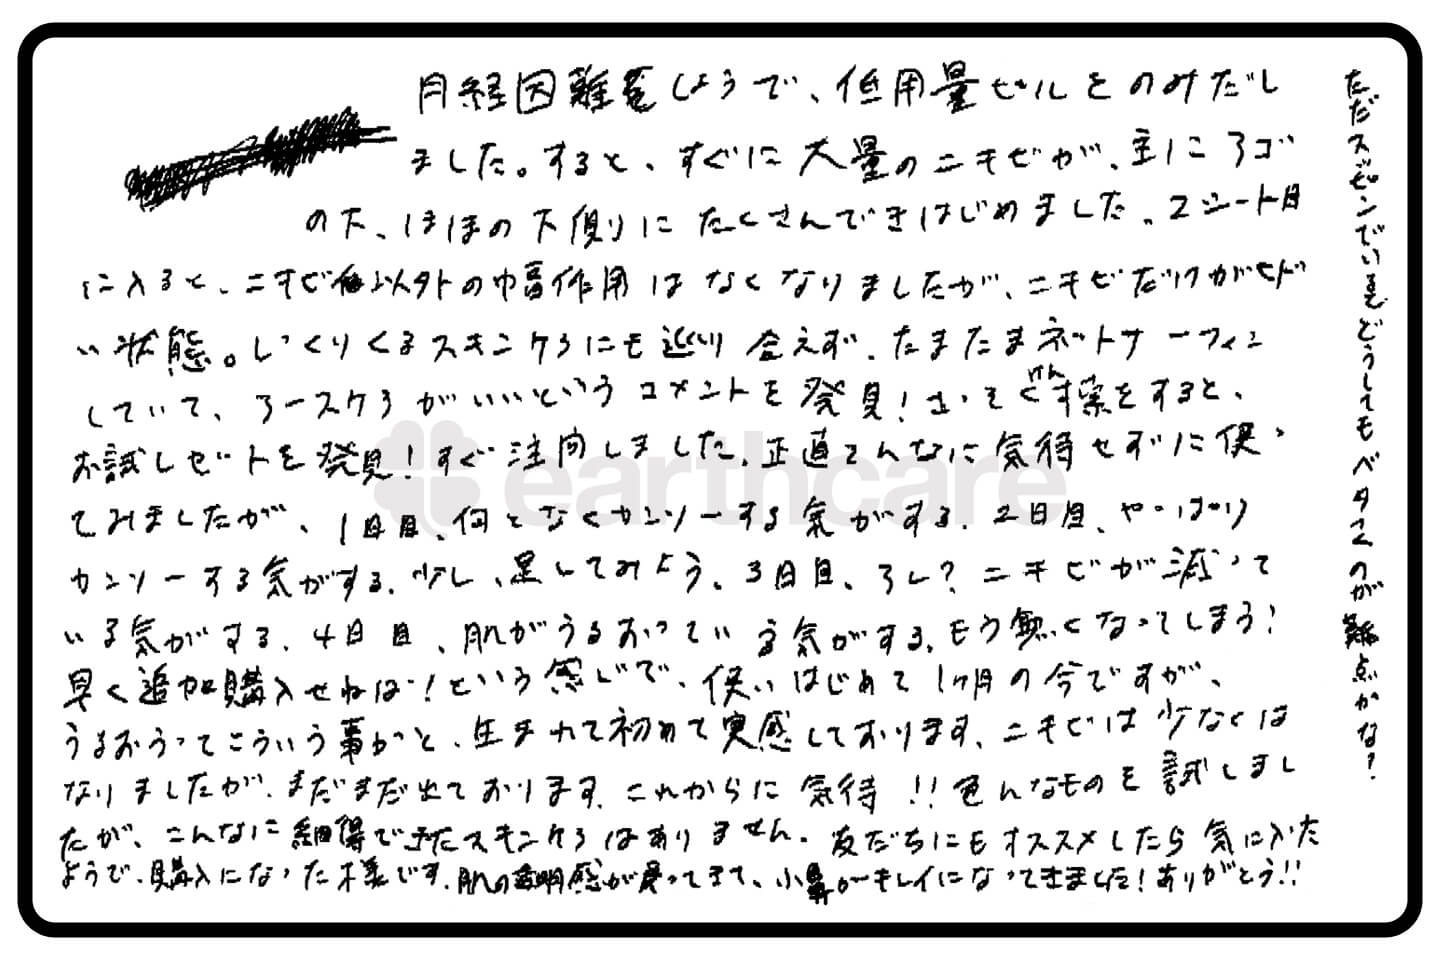 月経因難症しようで、低用量ピルをのみだし
ました。すると、すぐに大量のニキビが、主にアゴ
の下、ほほの下側りにたくさんできはじめました。2シート目
に入ると、ニキビ以外の巾畐作用はなくなりましたが、ニキビだけがヒド
い状態。しっくりくるスキンケアにも巡り合えず、たまたまネットサーフィン
していて、アースケアがいいというコメントを発見!さっそくけん索をすると、
お試しセットを発見!すぐ注文しました。正直そんなに気待せずに使っ
てみましたが、1日目、何となくカンソーする気がする。2日目、やっぱり
カンソーする気がする。少し、足してみよう。3日目、アレ?ニキビが減って
いる気がする。4日目、肌がうるおってい る気がする。もう無くなってしまう!
早く追加購入せねば!という感じで、使いはじめて1ヶ月の今ですが、
うるおうってこういう事かと、生まれて初めて実感しております。ニキビは少なくは
なりましたが、まだまだ出ております。これからに気待!!色んなものを試しまし
たが、こんなに納得できたスキンケアはありません。友だちにもオススメしたら気に入った
ようで、購入になった様です。肌の透明感が戻ってきて、小鼻がキレイになってきました!ありがとう!!
ただスッピンでいるとどうしてもベタつくのが難点かな?
earthcare